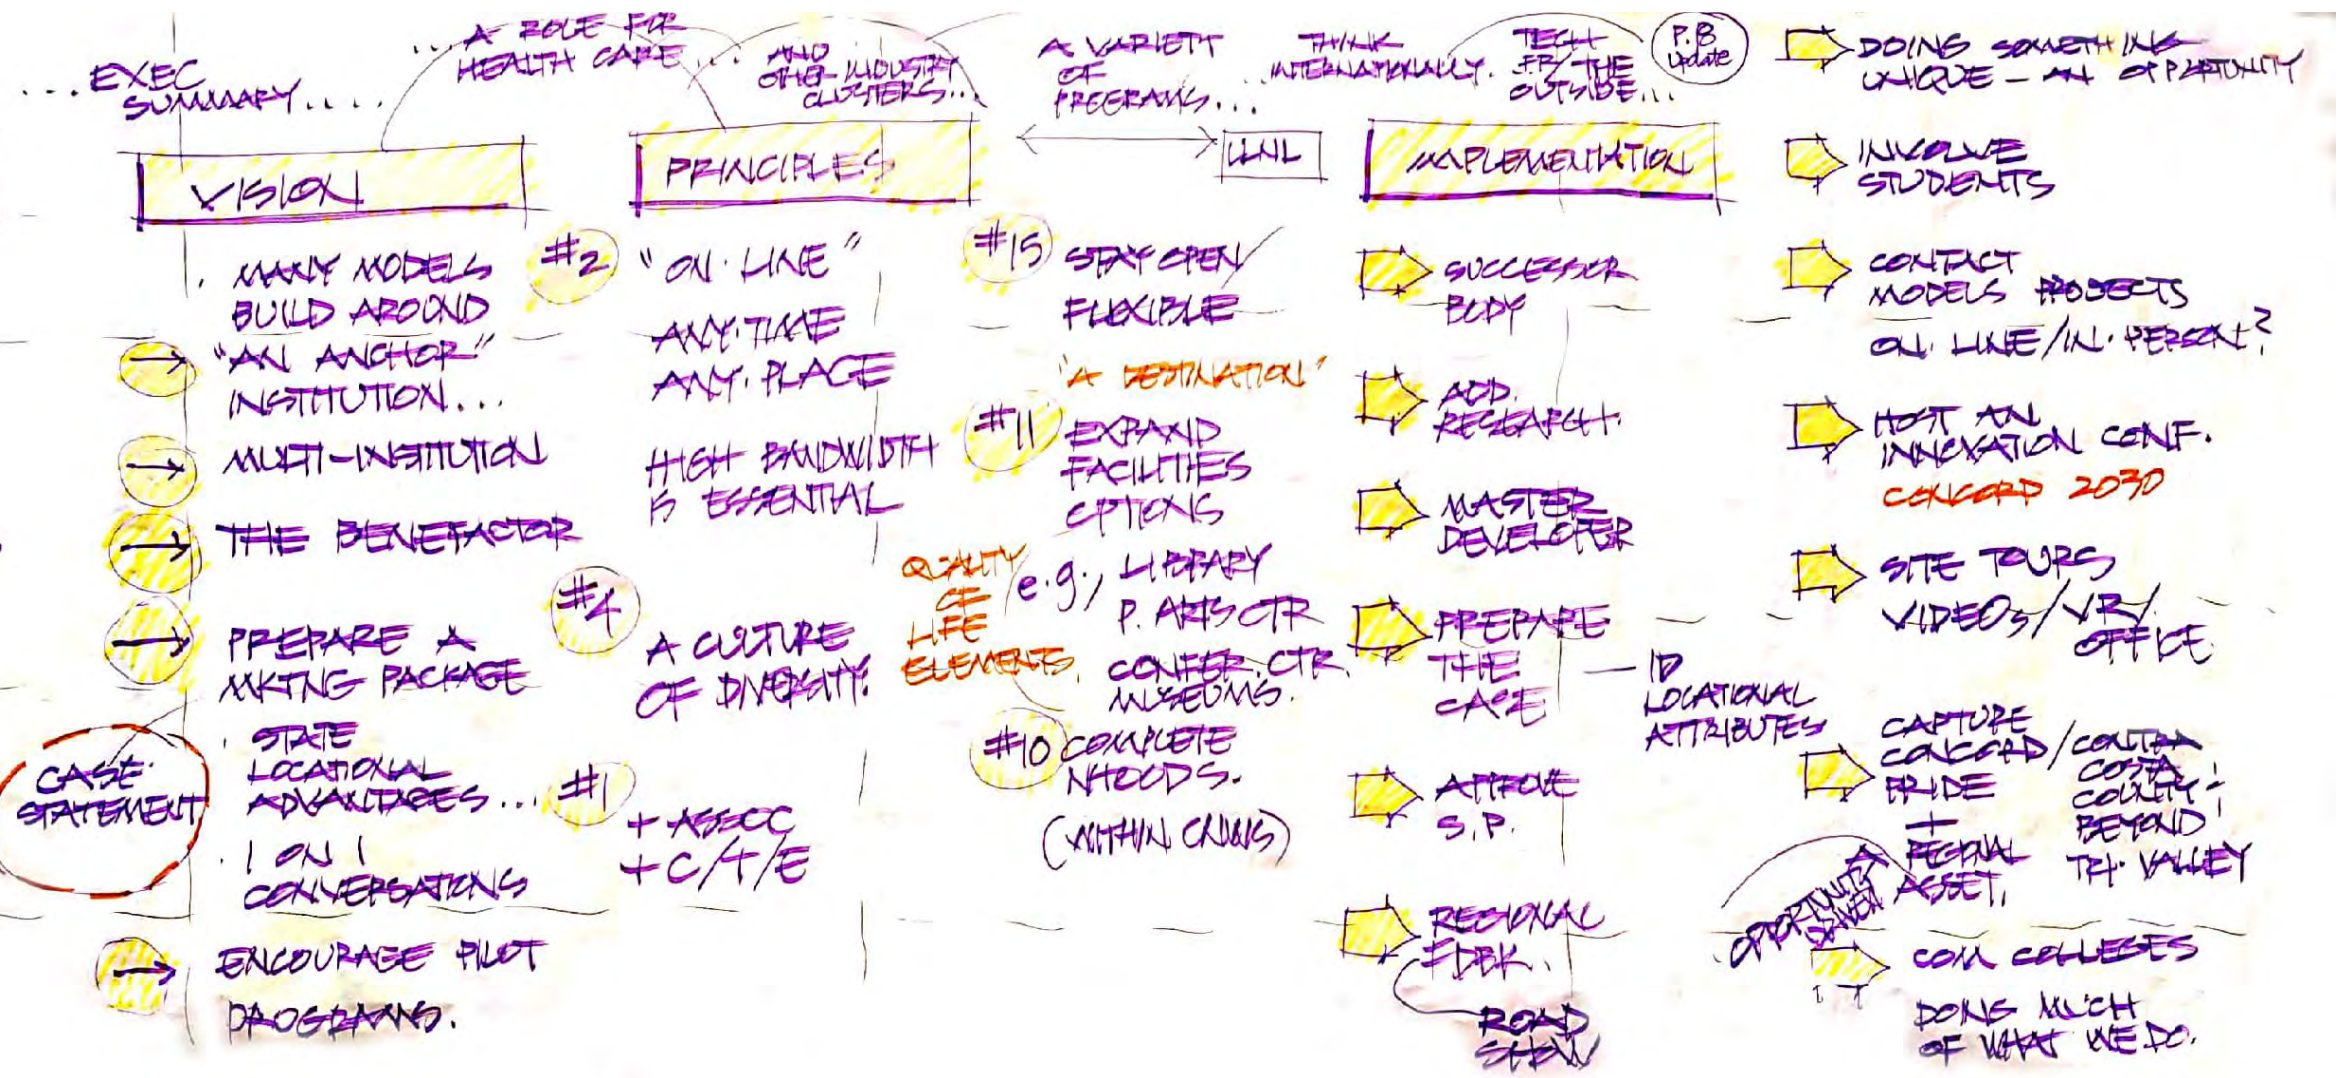 ... EXEC
SUMMARY....
... A ROLE FOR
HEALTH CARE...
AND
OTHER INDUSTRY
CLUSTERS...
A VARIETY
OF
PROGRAMS...
THINK
... INTERNATIONALLY.
TECH
FR/THE
OUTSIDE...
P.B
update
VISION
. MANY MODELS
BUILD AROUND
"AN ANCHOR"
INSTITUTION...
MULTI-INSTITUTION
THE BENEFACTOR
PREPARE A
MKTNG PACKAGE
. STATE
LOCATIONAL
ADVANTAGES...
. 1 ON 1
CONVERSATIONS
CASE
STATEMENT
ENCOURAGE PILOT
PROGRAMS.
PRINCIPLES
#2
"ON·LINE"
ANY·TIME
ANY·PLACE
HIGH BANDWIDTH
IS ESSENTIAL
#4
A CULTURE
OF DIVERSITY.
#1
+ ASSOC
+ C/T/E
LLNL
#15
STAY OPEN/
FLEXIBLE
"A DESTINATION"
#11
EXPAND
FACILITIES
OPTIONS
QUALITY
OF
LIFE
ELEMENTS.
e.g., LIBRARY
P. ARTS CTR
CONFER. CTR.
MUSEUMS.
#10 COMPLETE
NHOODS.
(WITHIN CNWS)
IMPLEMENTATION
SUCCESSOR
BODY
ADD.
RESEARCH.
MASTER
DEVELOPER
PREPARE
THE
CASE
— ID
LOCATIONAL
ATTRIBUTES
APPROVE
S.P.
REGIONAL
FDBK.
ROAD
SHOW
DOING SOMETHING
UNIQUE – AN OPPORTUNITY
INVOLVE
STUDENTS
CONTACT
MODELS PROJECTS
ON·LINE/IN·PERSON?
HOST AN
INNOVATION CONF.
CONCORD 2030
SITE TOURS
VIDEOS/VR/
OFFICE
CAPTURE
CONCORD/CONTRA
COSTA
COUNTY
BEYOND
TRI·VALLEY
PRIDE
+
A REGIONAL
ASSET.
OPPORTUNITY
DRIVEN
COM COLLEGES
DOING MUCH
OF WHAT WE DO.